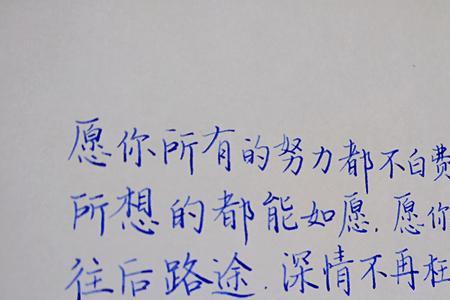 愿你所有的努力都不白费
所想的都能如愿.愿你
往后路途.深情不再枉